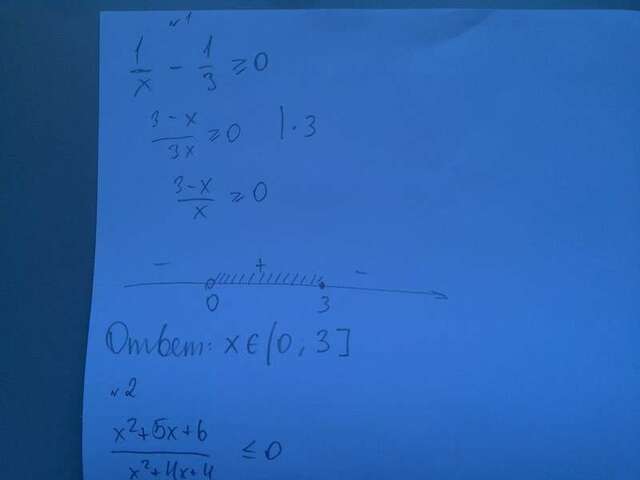 №1
1/x - 1/3 ≥ 0
3-x/3x ≥ 0 | · 3
3-x/x ≥ 0
- + -
0 3
Ответ: x ∈ (0; 3]
№2
x²+5x+6/x²+4x+4 ≤ 0